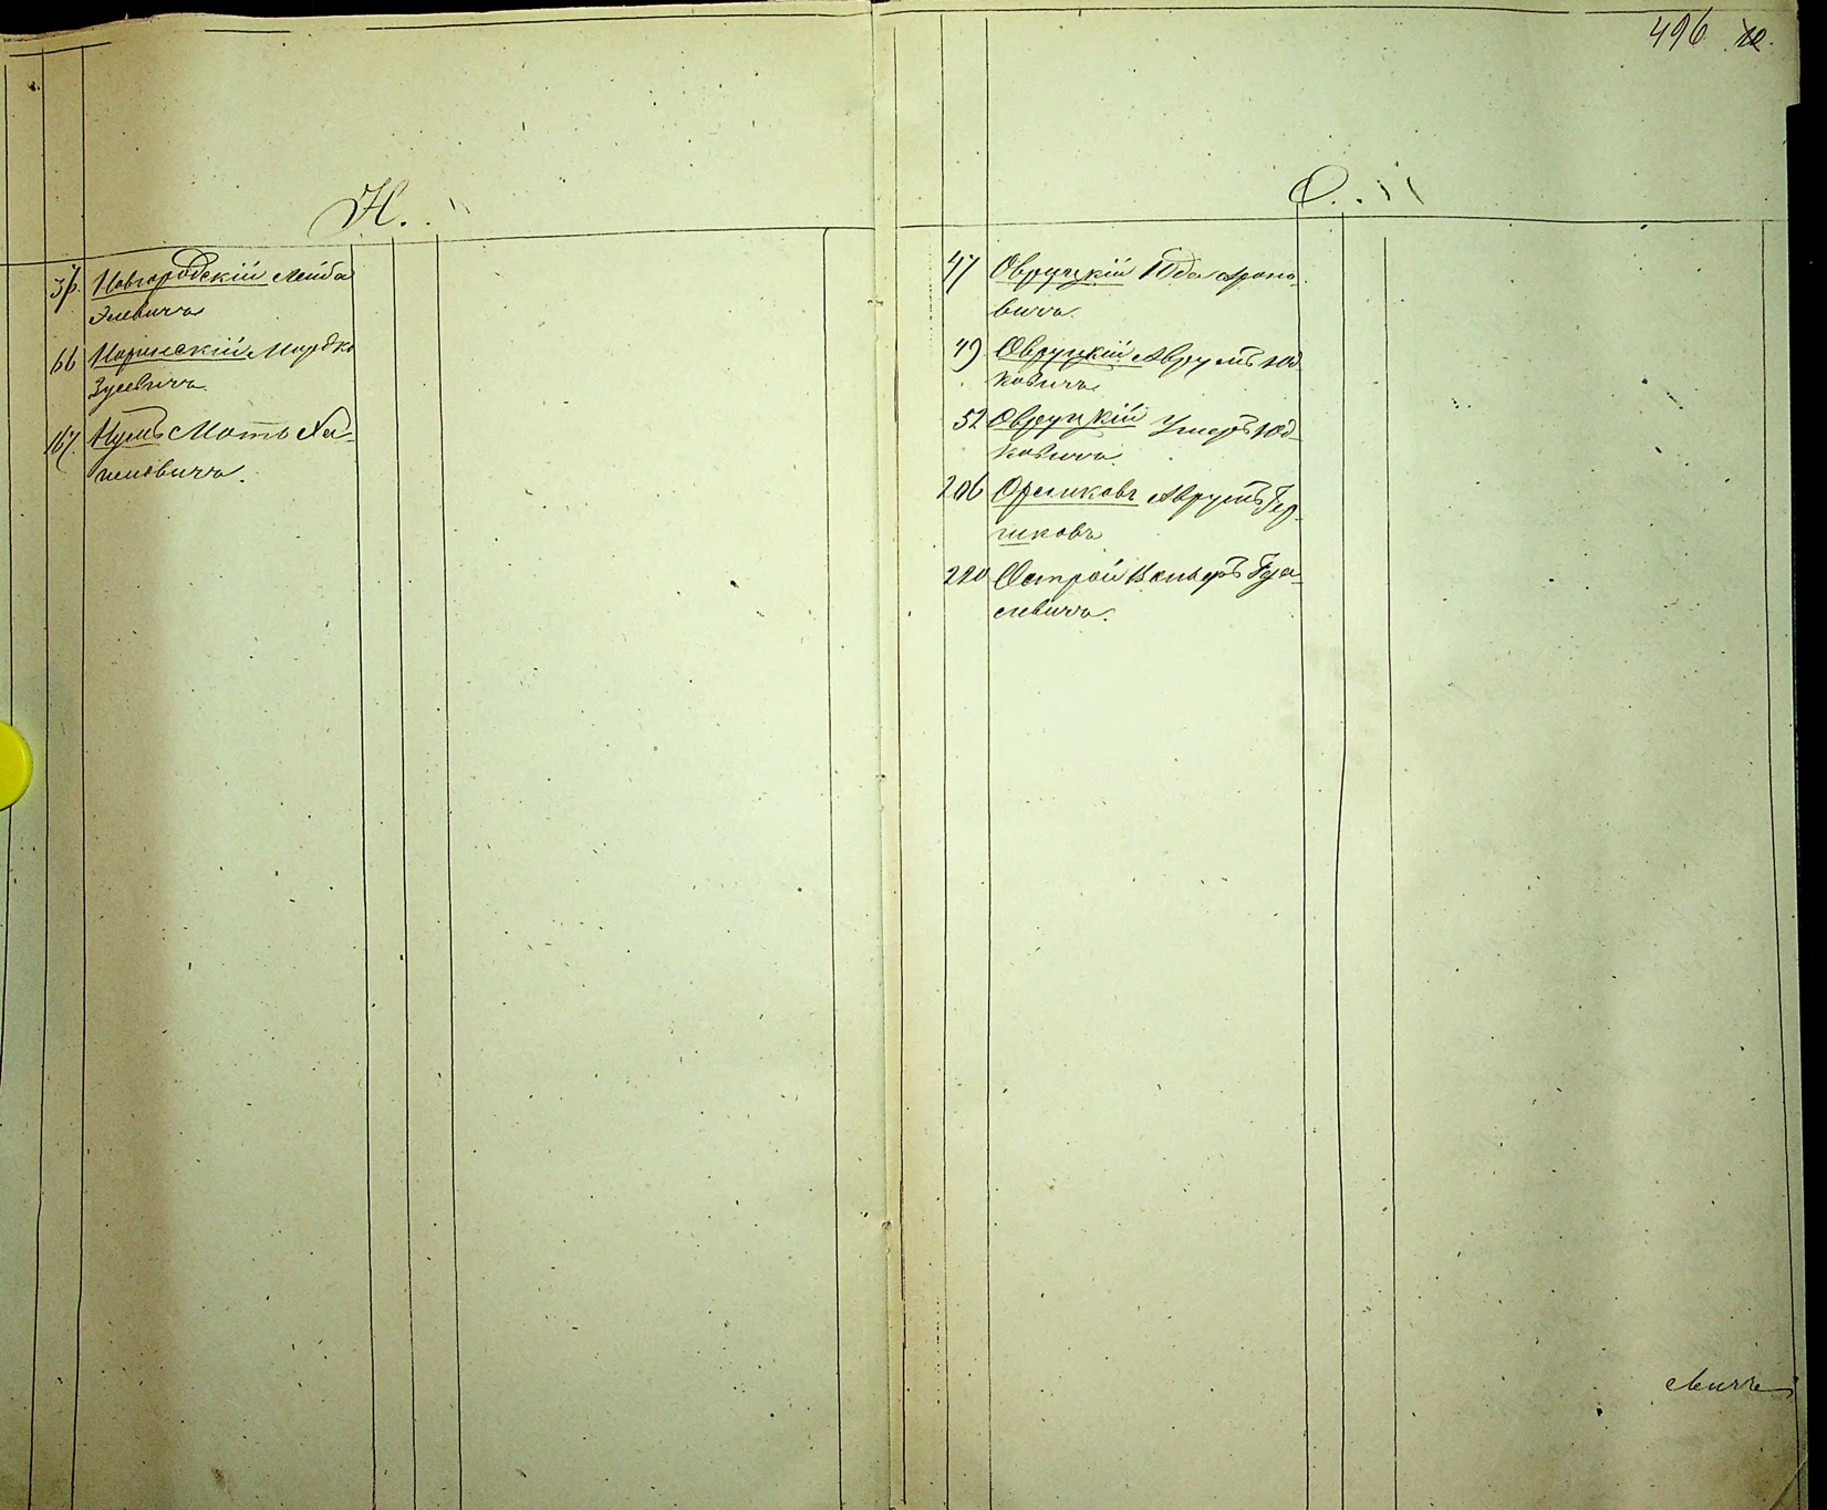 496
Н.
37. Новгородскій Лейба
Элевичъ
66 Норинскій Мордко
Зусевичъ.
167. Нумъ Мотъ Ха-
имовичъ.
О.
47 Овруцкій Юда Ароно-
вичъ.
49 Овруцкій Аврумъ Юд-
ковичъ
52 Овруцкій Умеръ Юд-
ковичъ
206 Орликовъ Аврумъ Гер-
шковъ
210 Острой
евичъ.